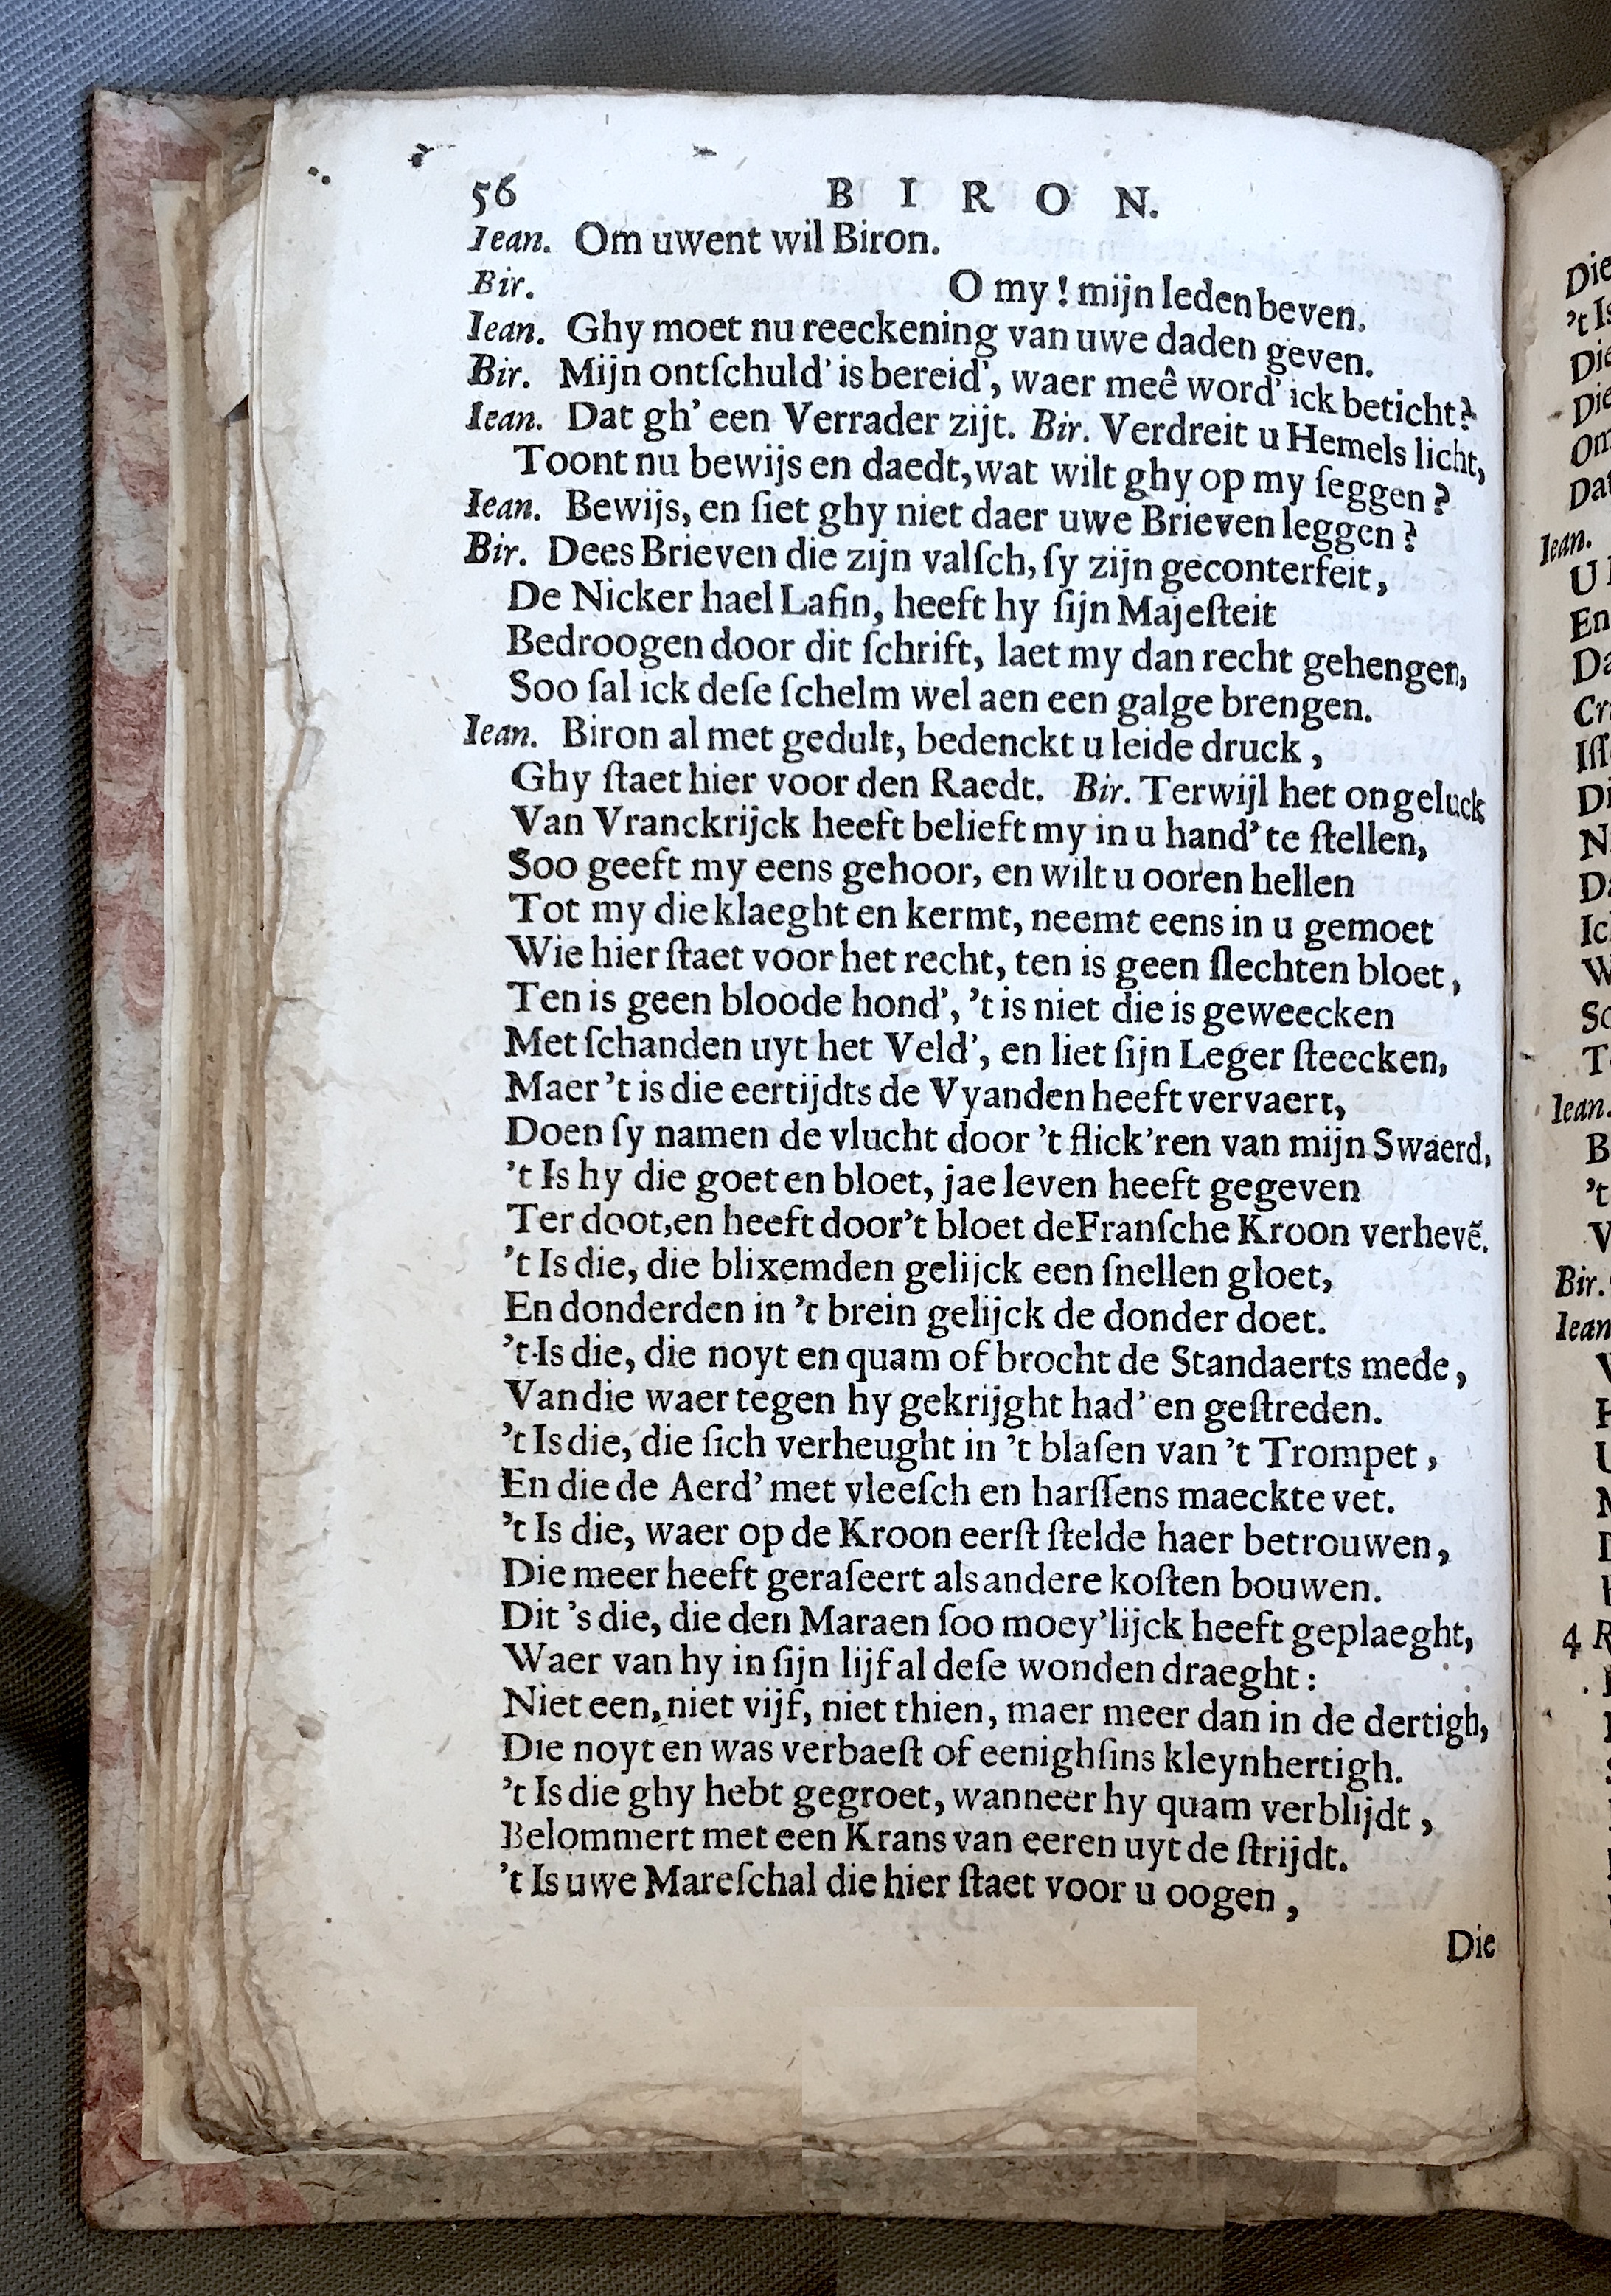 56 BIRON.
Iean. Om uwent wil Biron.
Bir. O my! mijn leden beven.
Iean. Ghy moet nu reeckening van uwe daden geven.
Bir. Mijn ontſchuld' is bereid', waer meê word' ick beticht?
Iean. Dat gh' een Verrader zijt. Bir. Verdreit u Hemels licht,
Toont nu bewijs en daedt, wat wilt ghy op my ſeggen?
Iean. Bewijs, en ſiet ghy niet daer uwe Brieven leggen?
Bir. Dees Brieven die zijn valſch, ſy zijn geconterfeit,
De Nicker hael Lafin, heeft hy ſijn Majeſteit
Bedroogen door dit ſchrift, laet my dan recht gehengen,
Soo ſal ick deſe ſchelm wel aen een galge brengen.
Iean. Biron al met gedult, bedenckt u leide druck,
Ghy ſtaet hier voor den Raedt. Bir. Terwijl het ongeluck
Van Vranckrijck heeft belieft my in u hand' te ſtellen,
Soo geeft my eens gehoor, en wilt u ooren hellen
Tot my die klaeght en kermt, neemt eens in u gemoet
Wie hier ſtaet voor het recht, ten is geen ſlechten bloet,
Ten is geen bloode hond', 't is niet die is geweecken
Met ſchanden uyt het Veld', en liet ſijn Leger ſteecken,
Maer 't is die eertijdts de Vyanden heeft vervaert,
Doen ſy namen de vlucht door 't flick'ren van mijn Swaerd,
't Is hy die goet en bloet, jae leven heeft gegeven
Ter doot, en heeft door 't bloet de Franſche Kroon verhevẽ.
't Is die, die blixemden gelijck een ſnellen gloet,
En donderden in 't brein gelijck de donder doet.
't Is die, die noyt en quam of brocht de Standaerts mede,
Van die waer tegen hy gekrijght had' en geſtreden.
't Is die, die ſich verheught in 't blaſen van 't Trompet,
En die de Aerd' met vleeſch en harſſens maeckte vet.
't Is die, waer op de Kroon eerſt ſtelde haer betrouwen,
Die meer heeft geraſeert als andere koſten bouwen.
Dit 's die, die den Maraen ſoo moey'lijck heeft geplaeght,
Waer van hy in ſijn lijf al deſe wonden draeght:
Niet een, niet vijf, niet thien, maer meer dan in de dertigh,
Die noyt en was verbaeſt of eenighſins kleynhertigh.
't Is die ghy hebt gegroet, wanneer hy quam verblijdt,
Belommert met een Krans van eeren uyt de ſtrijdt.
't Is uwe Mareſchal die hier ſtaet voor u oogen,
Die
Die
't Is
Die
Die
Om
Dat
Iean.
U
En
Da
Iean.
B
't
V
Bir.
Iean
4